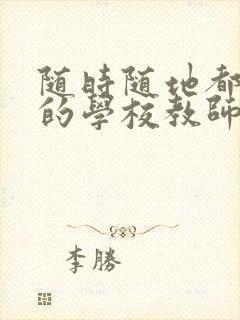 随時隨地都
的學校教師
李勝